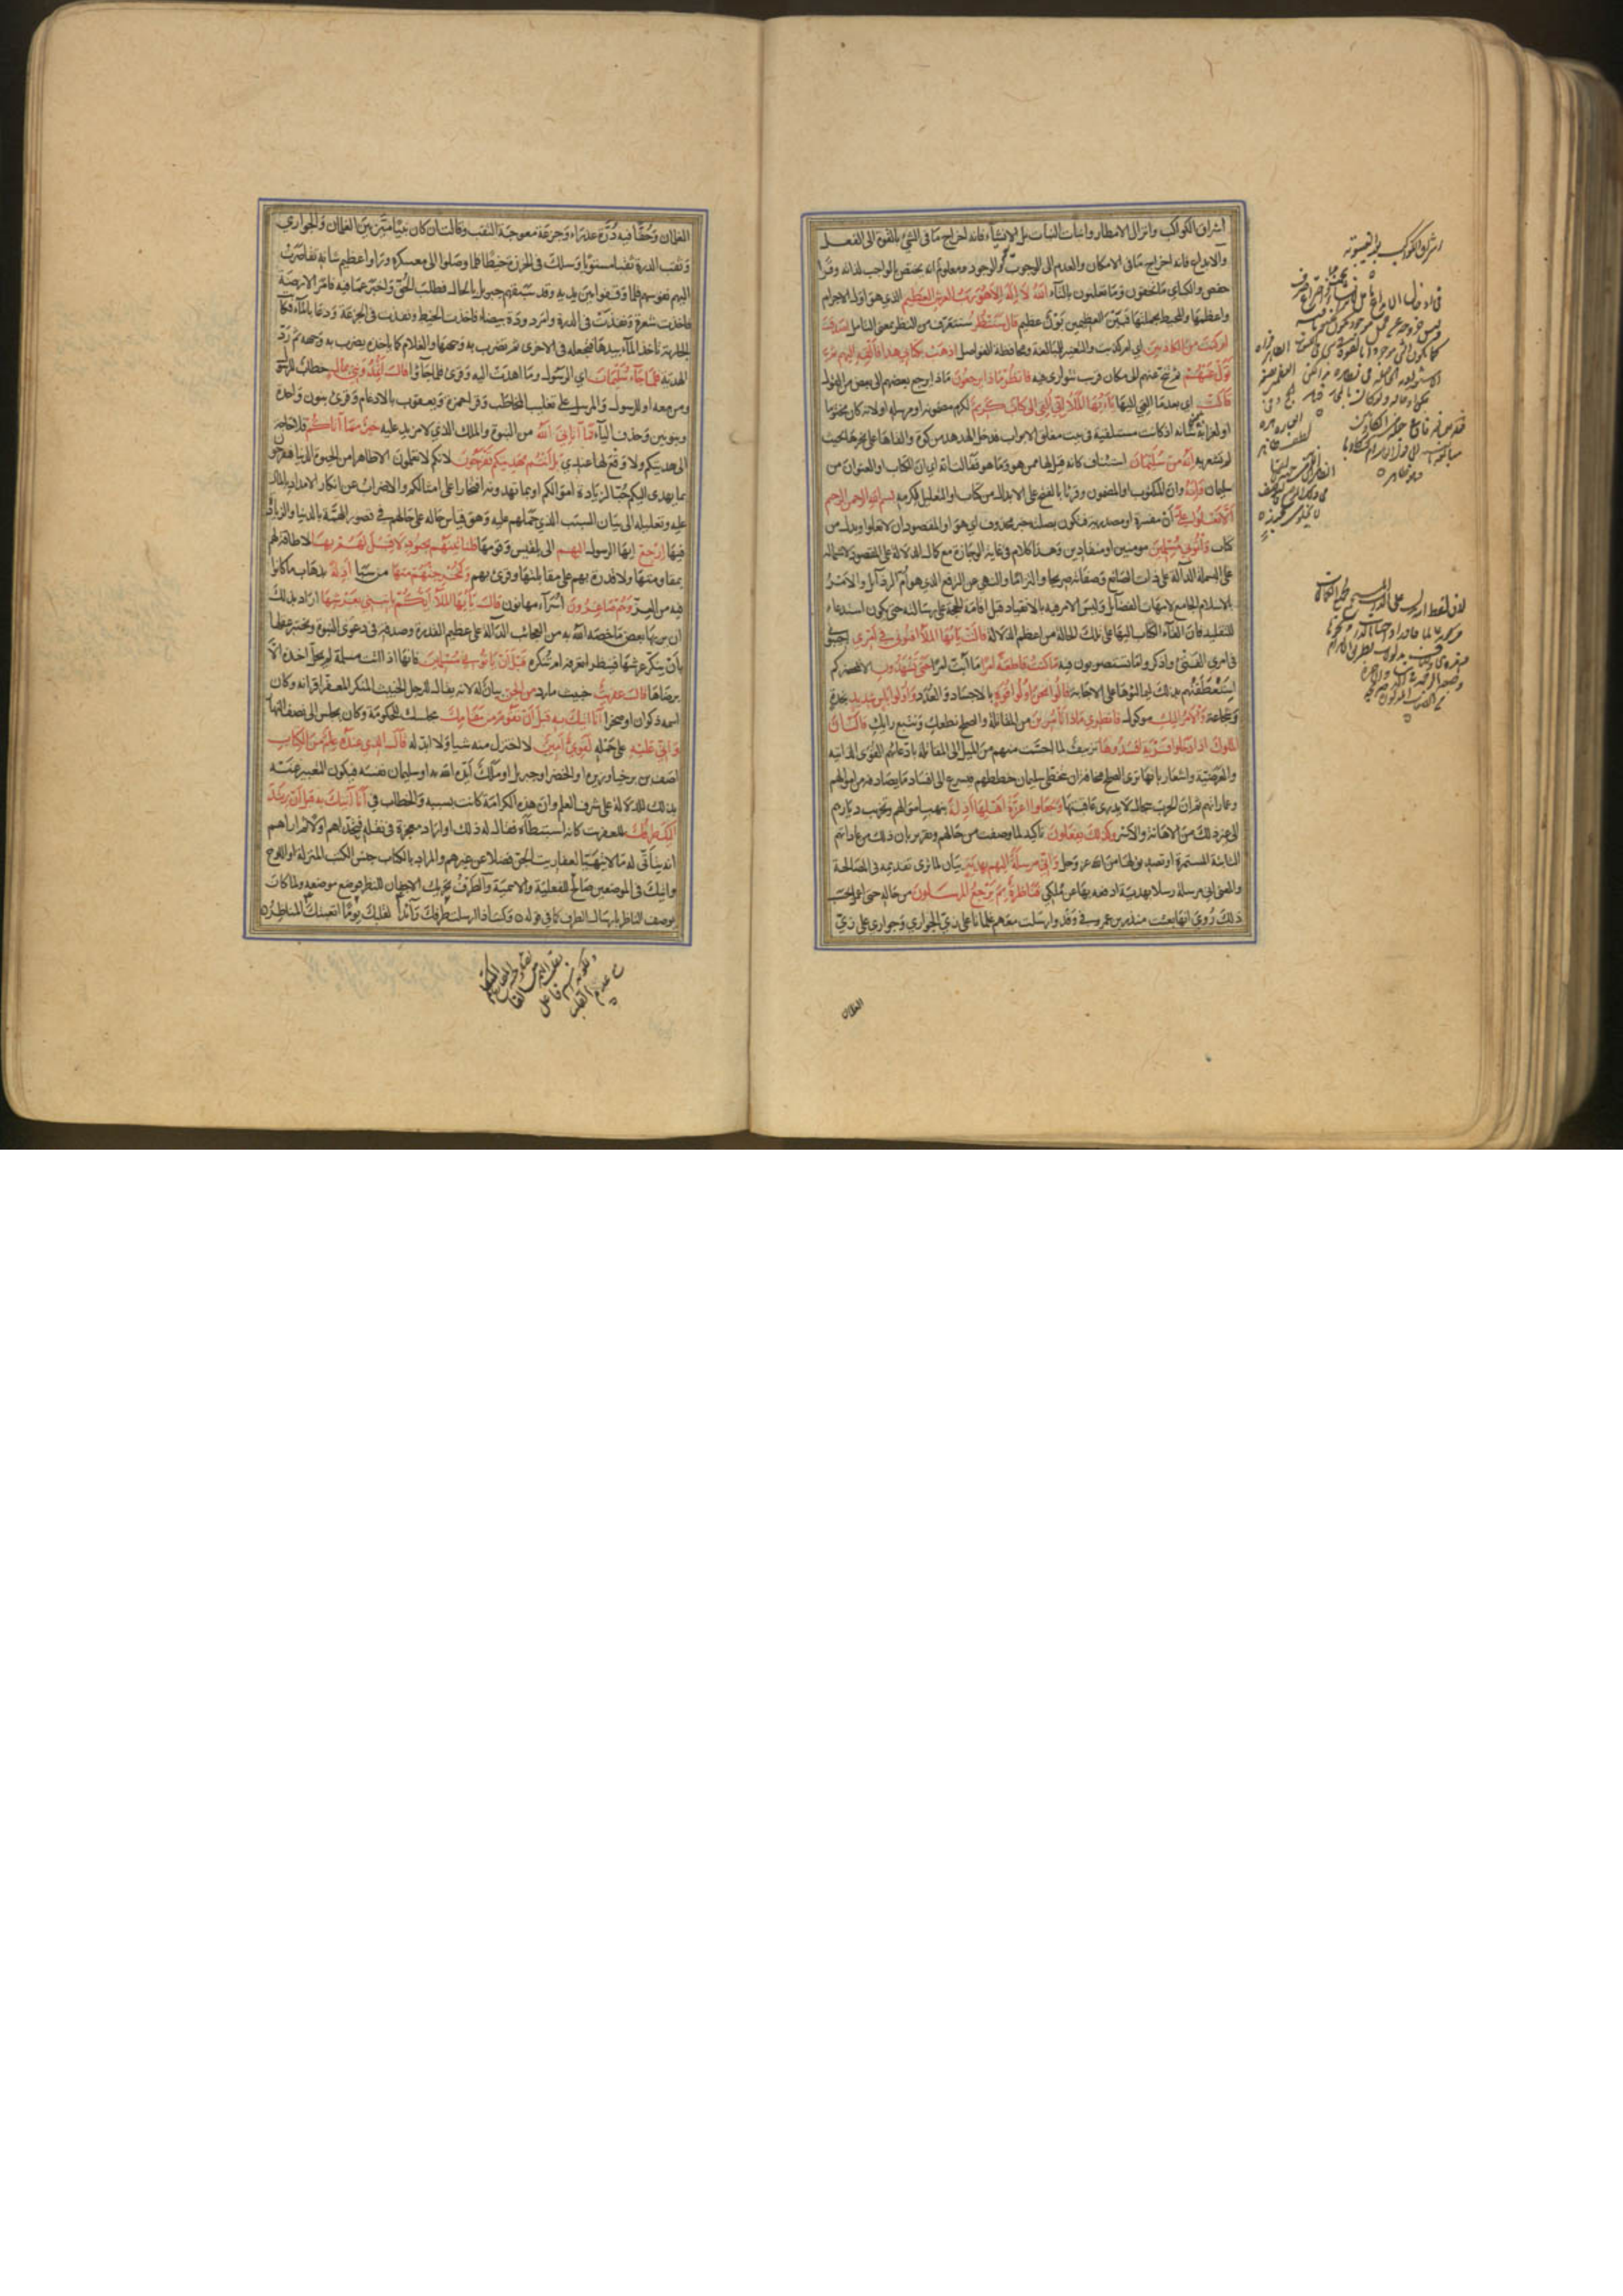 اشراق الكواكب وانزال الامطار وانبات النبات بل الانشاء فانه اخراج ما فى الشئ بالقوة الى الفعل
والابداع فانه اخراج ما فى الامكان والعدم الى الوجوب والوجود ومعلوم انه يختص بالواجب لذاته وقرأ
حفص والكساي ما تخفون وما تعلنون بالتاء الله لا اله الا هو رب العرش العظيم الذي هو اول الاجرام
واعظمها والمحيط بجملتها فبين العظيمين بون عظيم قال سننظر سنتعرف من النظر بمعنى التامل اصدقت
ام كنت من الكاذبين اي ام كذبت والتغيير للمبالغة ومحافظة الفواصل اذهب بكتابي هذا فالقه اليهم ثم
تول عنهم ثم تنح عنهم الى مكان قريب تتوارى فيه فانظر ماذا يرجعون ماذا يرجع بعضهم الى بعض من القول
قالت اي بعد ما القي اليها يا ايها الملأ اني القي الي كتاب كريم لكرم مضمونه او مرسله او لانه كان مختوما
او لغرابة شانه اذ كانت مستلقية في بيت مغلق الابواب فدخل الهدهد من كوة والقاه على نحرها بحيث
لم تشعر به انه من سليمان استيناف كانه قيل لها ممن هو وما هو فقالت انه اي ان الكتاب او العنوان من
سليمان وانه وان المكتوب او المضمون وقرئا بالفتح على الابدال من كتاب او التعليل لكرمه بسم الله الرحمن الرحيم
الا تعلوا علي ان مفسرة او مصدرية فتكون بصلتها خبر محذوف اي هو او المقصود ان لا تعلوا او بدل من
كتاب وأتوني مسلمين مومنين او منقادين وهذا كلام في غاية الوجازة مع كمال الدلالة على المقصود لاشتماله
على البسملة الدالة على ذات الصانع وصفاته صريحا او التزاما والنهي عن الترفع الذي هو ام الرذائل والامر
بالاسلام الجامع لامهات الفضائل وليس الامر فيه بالانقياد قبل اقامة الحجة على رسالته حتى يكون استدعاء
للتقليد فان القاء الكتاب اليها على تلك الحالة من اعظم الدلالة قالت يا ايها الملأ افتوني في امري اجيبوني
في امري الفتي واذكروا ما تستصوبون فيه ما كنت قاطعة امرا ما ابت امرا حتى تشهدون الا بمحضركم
استعطفتهم بذلك ليمالؤها على الاجابة قالوا نحن اولوا قوة بالاجساد والعدد واولوا بأس شديد نجدة
وشجاعة والامر اليك موكول فانظري ماذا تأمرين من المقاتلة والصلح نطعك ونتبع رايك قالت ان
الملوك اذا دخلوا قرية افسدوها تزييف لما احست منهم من الميل الى المقاتلة بادعائهم القوى الذاتية
والعرضية واشعار بانها ترى الصلح مخافة ان يتخطى سليمان خططهم فيسرع الى افساد ما يصادفه من اموالهم
وعماراتهم ثم ان الحرب سجال لا يدرى عاقبتها وجعلوا اعزة اهلها اذلة بنهب اموالهم وتخريب ديارهم
الى غير ذلك من الاهانة والاسر وكذلك يفعلون تاكيد لما وصفت من حالهم وتقرير بان ذلك من عاداتهم
الثابتة المستمرة او تصديق لها من الله عز وجل واني مرسلة اليهم بهدية بيان لما ترى تقديمه في المصالحة
والمعنى اني مرسلة رسلا بهدية ادفعه بها عن ملكي فناظرة بم يرجع المرسلون من حاله حتى اعمل بحسب
ذلك روي انها بعثت منذر بن عمرو في وفد وارسلت معهم غلمانا على زي الجواري وجواري على زي
الغلمان
الغلمان وحقا فيه درة عذراء وجزعة معوجة الثقب وقالت ان كان نبيا ميز بين الغلمان والجواري
وثقب الدرة ثقبا مستويا وسلك في الخرزة خيطا فلما وصلوا الى معسكره وراوا عظيم شانه تقاصرت
اليهم نفوسهم فلما وقفوا بين يديه وقد سبقهم جبريل بالحال فطلب الحق واخبر عما فيه فامر الارضة
فاخذت شعرة ونفذت في الدرة وامر دودة بيضاء فاخذت الخيط ونفذت في الجزعة ودعا بالماء فكانت
الجارية تاخذ الماء بيدها فتجعله في الاخرى ثم تضرب به وجهها والغلام كما ياخذه يضرب به وجهه ثم رد
الهدية فلما جاء سليمان اي الرسول وما اهدت اليه وقرئ فلما جاؤا قال اتمدونني بمال خطاب للرسول
ومن معه او للرسول والمرسل على تغليب المخاطب وقرأ حمزة ويعقوب بالادغام وقرئ بنون واحدة
وبنونين وحذف الياء فما اتاني الله من النبوة والملك الذي لا مزيد عليه خير مما اتاكم فلا حاجة
الى هديتكم ولا وقع لها عندي بل انتم بهديتكم تفرحون لانكم لا تعلمون الا ظاهرا من الحيوة الدنيا فتفرحون
بما يهدى اليكم حبا لزيادة اموالكم او بما تهدونه افتخارا على امثالكم والاضراب عن انكار الامداد بالمال
عليه وتعليله الى بيان السبب الذي حملهم عليه وهو قياس حاله على حالهم في قصور الهمة بالدنيا والزيادة
فيها ارجع ايها الرسول اليهم الى بلقيس وقومها فلنأتينهم بجنود لا قبل لهم بها لا طاقة لهم
بمقاومتها ولا قدرة بهم على مقابلتها وقرئ بهم ولنخرجنهم منها من سبأ اذلة بذهاب ما كانوا
فيه من العز وهم صاغرون اسراء مهانون قال يا ايها الملأ ايكم يأتيني بعرشها اراد بذلك
ان يريها بعض ما خصه الله به من العجائب الدالة على عظيم القدرة وصدقه في دعوى النبوة ويختبر عقلها
بان ينكر عرشها فينظر اتعرفه ام تنكره قبل ان يأتوني مسلمين فانها اذا اتت مسلمة لم يحل اخذه الا
برضاها قال عفريت خبيث مارد من الجن بيان له لانه يقال للرجل الخبيث المنكر المعفر اقرانه وكان
اسمه ذكوان او صخرا انا اتيك به قبل ان تقوم من مقامك مجلسك للحكومة وكان يجلس الى نصف النهار
واني عليه على حمله لقوي امين لا اختزل منه شيا ولا ابدله قال الذي عنده علم من الكتاب
اصف بن برخيا وزيره او الخضر او جبريل او ملك ايده الله به او سليمان نفسه فيكون التعبير عنه
بذلك للدلالة على شرف العلم وان هذه الكرامة كانت بسببه والخطاب في انا اتيك به قبل ان يرتد
اليك طرفك للعفريت كانه استبطأه فقال له ذلك او اراد معجزة في نقله فتحداهم اولا ثم اراهم
انه يتأتى له ما لا يتهيأ لعفاريت الجن فضلا عن غيرهم والمراد بالكتاب جنس الكتب المنزلة او اللوح
واتيك في الموضعين صالح للفعلية والاسمية والطرف تحريك الاجفان للنظر فوضع موضعه ولما كان
يوصف الناظر بارسال الطرف كما في قوله وكنت اذا ارسلت طرفك رائدا لقلبك يوما اتعبتك المناظر